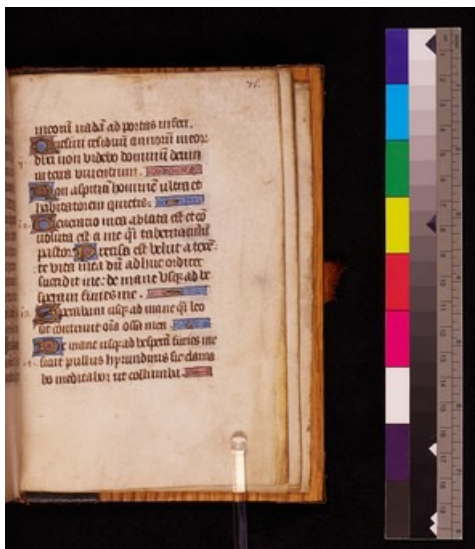 76.
meorū vadā ad portas inferi.
Quesivi residuū annorū meor
dixi non videbo dominū deum
in terra viventium.
Non aspiciā hominē ultra et
habitatorem quietis.
Generatio mea ablata est et cō
voluta est a me q̄i tabernaculū
pastor. Precisa est velut a texē
te vita mea dū adhuc ordirer
succidit me: de mane usq; ad ve
speram finies me.
Sperabam usq; ad mane q̄i leo
sic contrivit oīa ossa mea.
De mane usq; ad vesperū finies me
sicut pullus hyrundinis sic clama
bo meditabor ut columba.